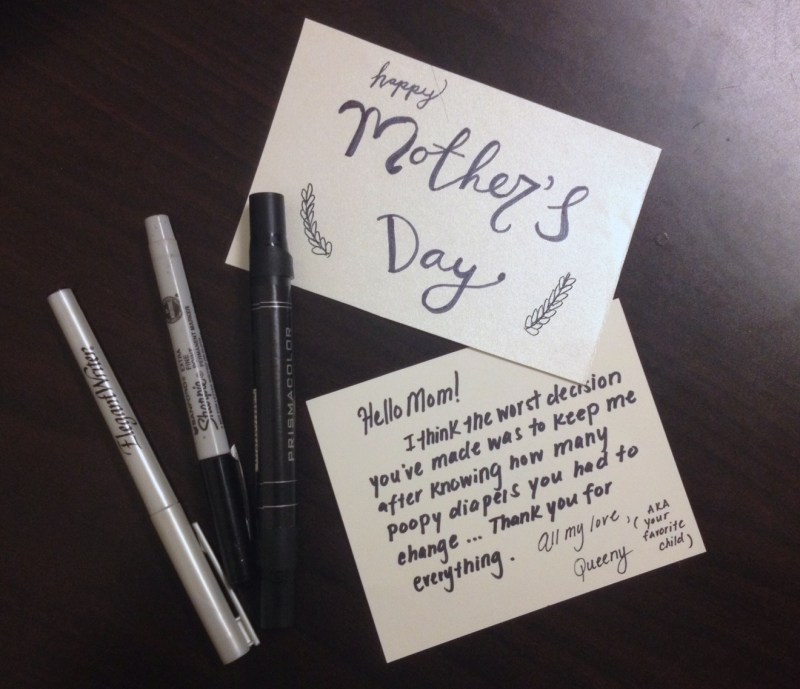 happy
Mother's
Day
Hello Mom!
I think the worst decision
you've made was to keep me
after knowing how many
poopy diapers you had to
change ... Thank you for
everything.
All my love,
Queeny
(AKA
your
favorite
child)
Elegant Writer
Sharpie
PRISMACOLOR